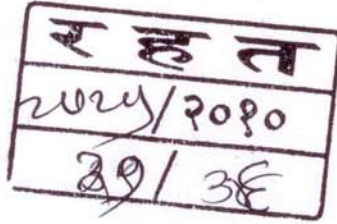 र ह त
२०२५/२०१०
३१/ ३६